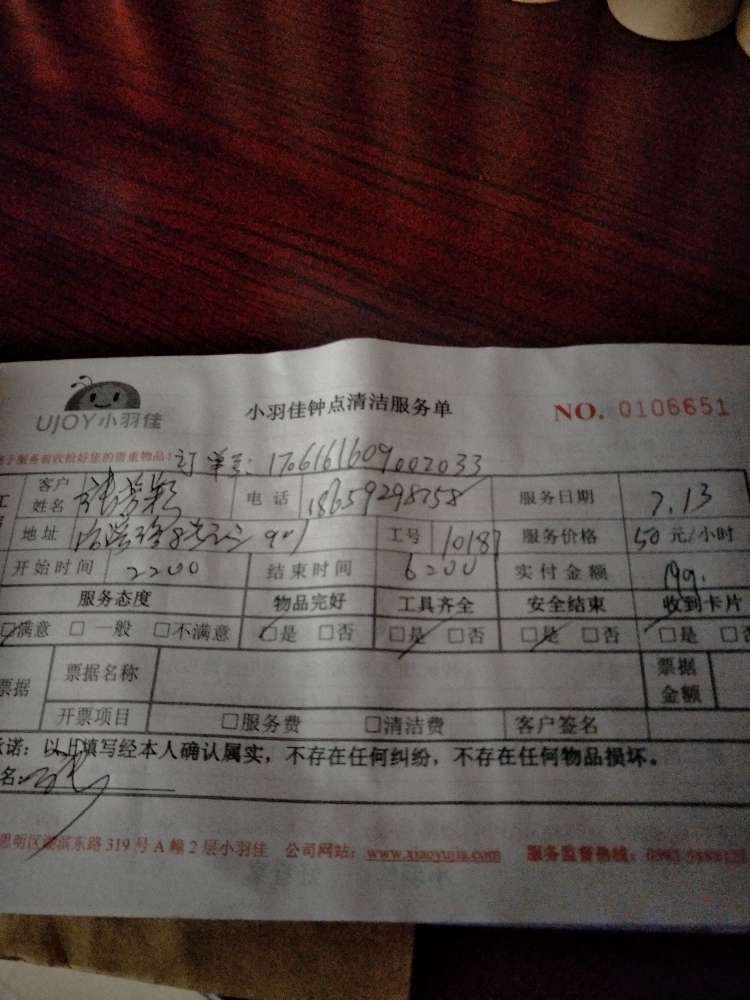 UJOY小羽佳
小羽佳钟点清洁服务单
NO. 0106651
于服务前收捡好您的贵重物品!
订单号: 1706161609002033
客户姓名 电话 18659298258 服务日期 7.13
地址 901 工号 10187 服务价格 50 元/小时
开始时间 2200 结束时间 6200 实付金额 199.
服务态度 物品完好 工具齐全 安全结束 收到卡片
□满意 □一般 □不满意 □是 □否 □是 □否 □是 □否 □是 □否
票据 票据名称 票据金额
开票项目 □服务费 □清洁费 客户签名
承诺:以上填写经本人确认属实,不存在任何纠纷,不存在任何物品损坏。
名:
思明区湖滨东路319号A幢2层小羽佳 公司网站:www.xiaoyujia.com 服务监督热线: